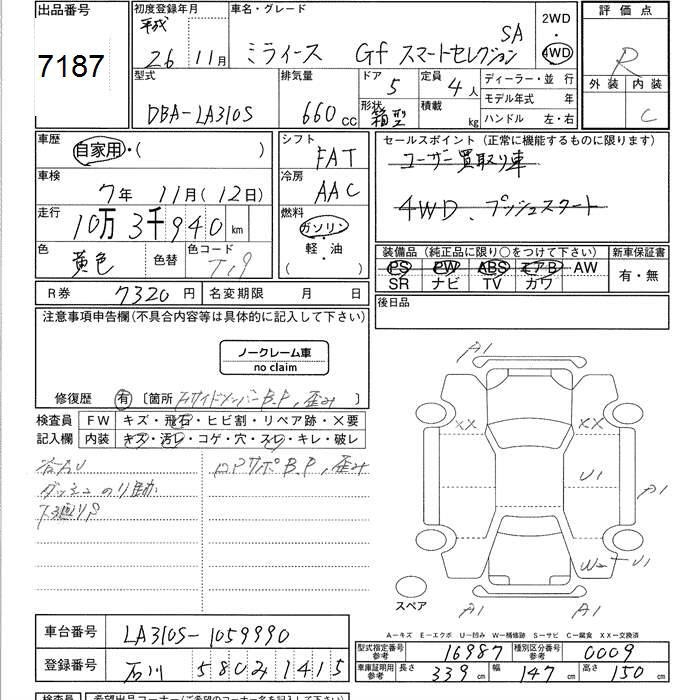 出品番号 初度登録年月 車名・グレード 2WD 評価点
平成 SA ・
7187 26年 11月 ミライース Gf スマートセレクション 4WD R
型式 排気量 ドア 5 定員 4人 ディーラー・並 行 外装 内装
モデル年式 年
DBA-LA310S 660cc 形状 箱型 積載 kg ハンドル 左・右 C
車歴 自家用・( ) シフト FAT セールスポイント(正常に機能するものに限ります)
ユーザー買取り車
車検 7年 11月(12日) 冷房 AAC
4WD、プッシュスタート
走行 10万 3千940 km 燃料 ガソリン
軽・油
( )
色 黄色 色替 色コード 装備品(純正品に限り○をつけて下さい) 新車保証書
PS PW ABS エアB AW 有・無
SR ナビ TV カワ
R券 7320円 名変期限 月 日 後日品
注意事項申告欄(不具合内容等は具体的に記入して下さい)
ノークレーム車
no claim
修復歴 有 〔箇所 〕
検査員 FW キズ・飛石・ヒビ割・リペア跡・×要
記入欄 内装 キズ・汚レ・コゲ・穴・スレ・キレ・破レ
A1
XX XX
U1
A1
U1
A1 A1
スペア
A−キズ E−エクボ U−凹み W−補修跡 S−サビ C−腐食 XX−交換済
車台番号 LA310S-1059990
登録番号 石川 580み1415
型式指定番号 参考 16987 種別区分番号 参考 0009
車庫証明用 参考 長さ 339cm 幅 147cm 高さ 150cm
検査員 希望出品コーナー(ご希望のコーナー名を記入して下さい)